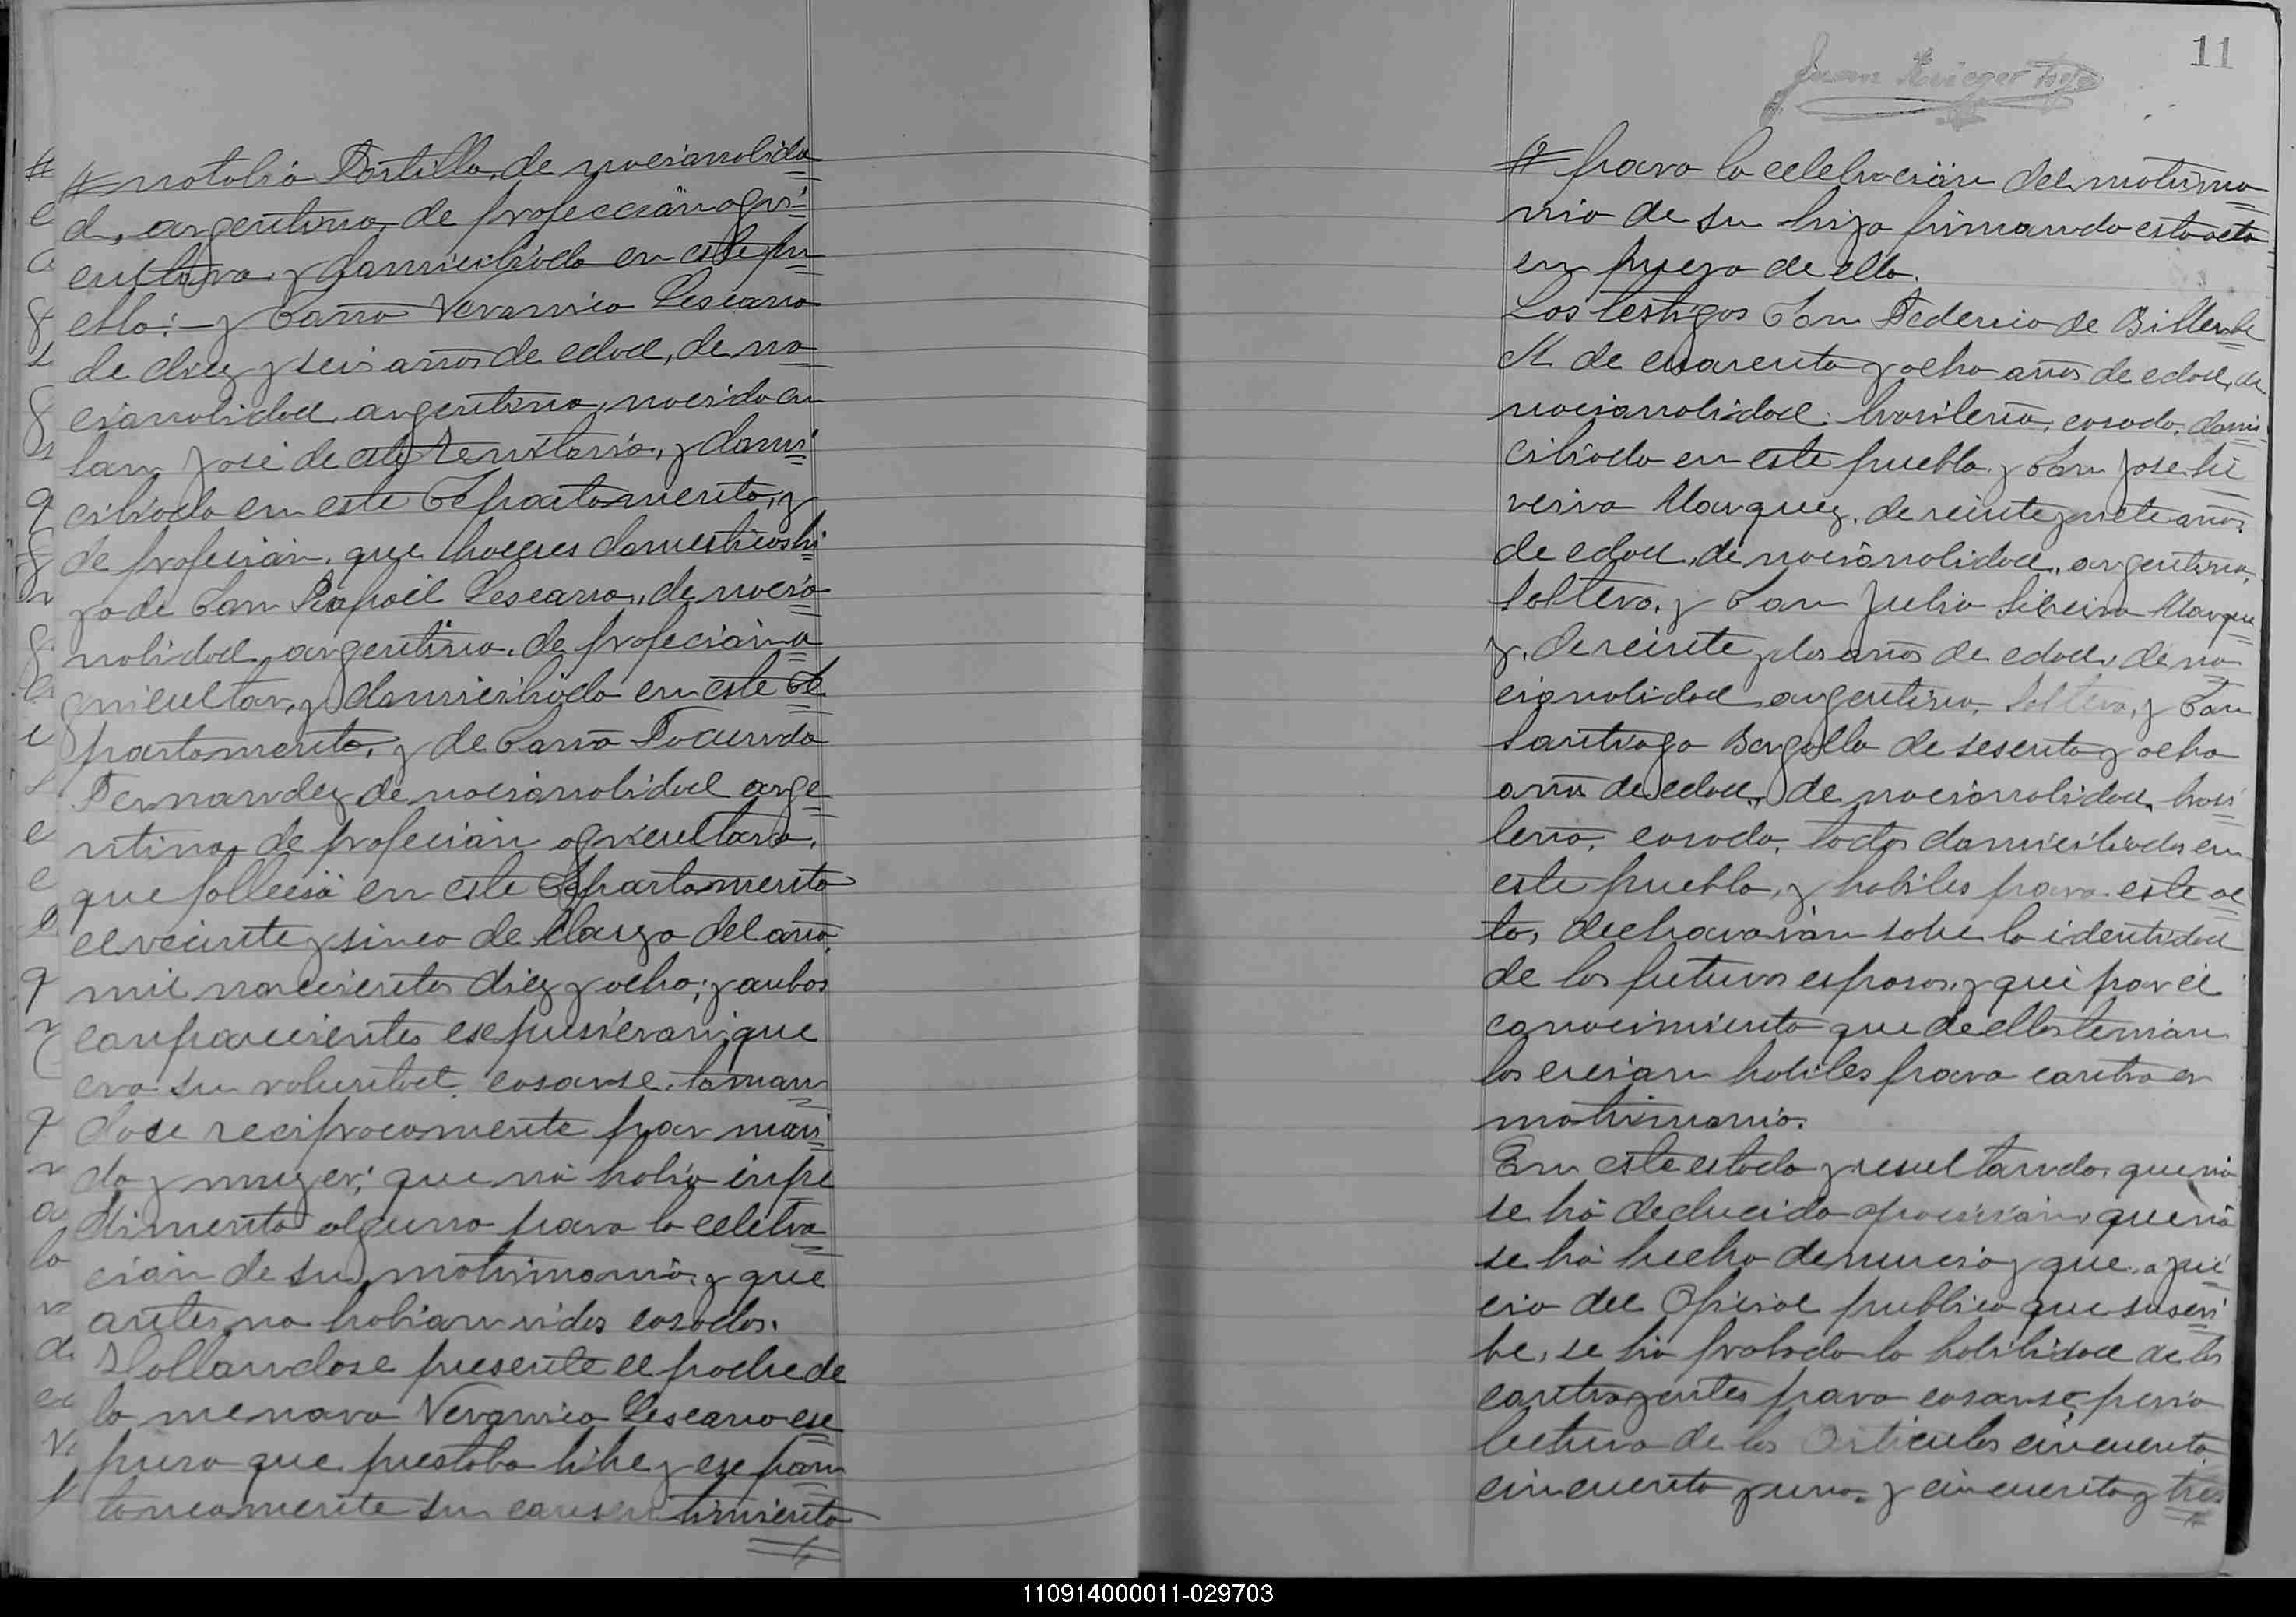 # natalia Portillo, de nacionalida=
d, argentina, de profeccion agri=
cultora y domiciliada en este pu=
eblo:— y Doña Veronica Lescano
de diez y seis años de edad, de na=
cionalidad argentina, nacida en
San José de este Territorio, y domi=
ciliada en este Departamento, y
de profecion, que haceres domesticos hi=
ja de Don Rapael Lescano, de nacio=
nalidad argentina, de profecion a=
gricultor, y domiciliado en este De=
partamento, y de Doña Facunda
Fernandez de nacionalidad arge=
ntina, de profecion agricultora,
que fallecio en este Departamento
el veinte y sinco de Marzo del año
mil novecientos diez y ocho; y ambos
comparecientes expusieron; que
era su voluntad casarse, toman=
dose reciprocamente por mari=
do y muger; que no habia inpe=
dimento alguno para la celebra=
cion de su matrimonio, y que
antes no habian sidos casados.
Hallandose presente el padre de
la menora Veronica Lescano ex=
puso que prestaba libre y expon=
taneamente su consentimiento
#
11
Juan Krieger
# para la celebracion del matrimo=
nio de su hija firmando esta acta
en fuego de ella.
Los testigos Don Federico de Billerbe=
ck de cuarenta y ocho años de edad, de
nacionalidad brasilera, casado, domi=
ciliado en este pueblo y Don Jose Sil=
veira Marquez, de veinte y siete años
de edad, de nacionalidad, argentina,
soltero, y Don Julio Silveira Marque=
z, de veinte y dos años de edad, de na=
cionalidad argentina, soltero, y Don
Santiago Bergallo de sesenta y ocho
años de edad, de nacionalidad brasi=
lera, casado, todos domiciliados en
este pueblo, y habiles para este ac=
to, declararon sobre la identidad
de los futuros esposos, y que por el
conocimiento que de ellos tenian
los creian habiles para contraer
matrimonio.
En este estado y resultando, que no
se há deducido oposicion, que no
se há hecho denuncia y que, a jui=
cio del Oficial publico que suscri=
be, se há probado la habilidad de los
contrayentes para casarse, previa
lectura de los Articulos cincuenta,
cincuenta y uno, y cincuenta y tres
#
110914000011-029703